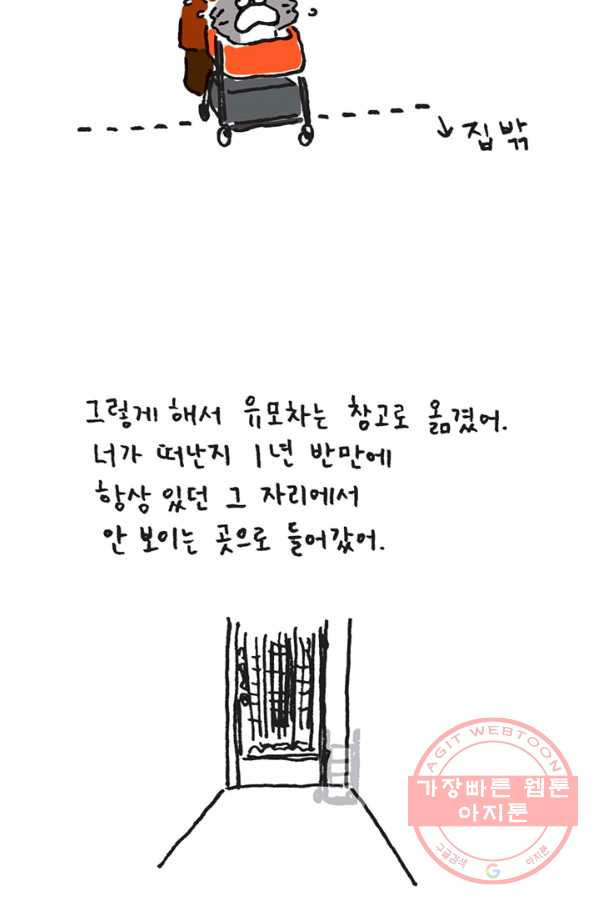 ↓ 집 밖
그렇게 해서 유모차는 창고로 옮겼어.
너가 떠난지 1년 반만에
항상 있던 그 자리에서
안 보이는 곳으로 들어갔어.
AGIT WEBTOON
가장빠른 웹툰
아지툰
구글검색 G 아지툰